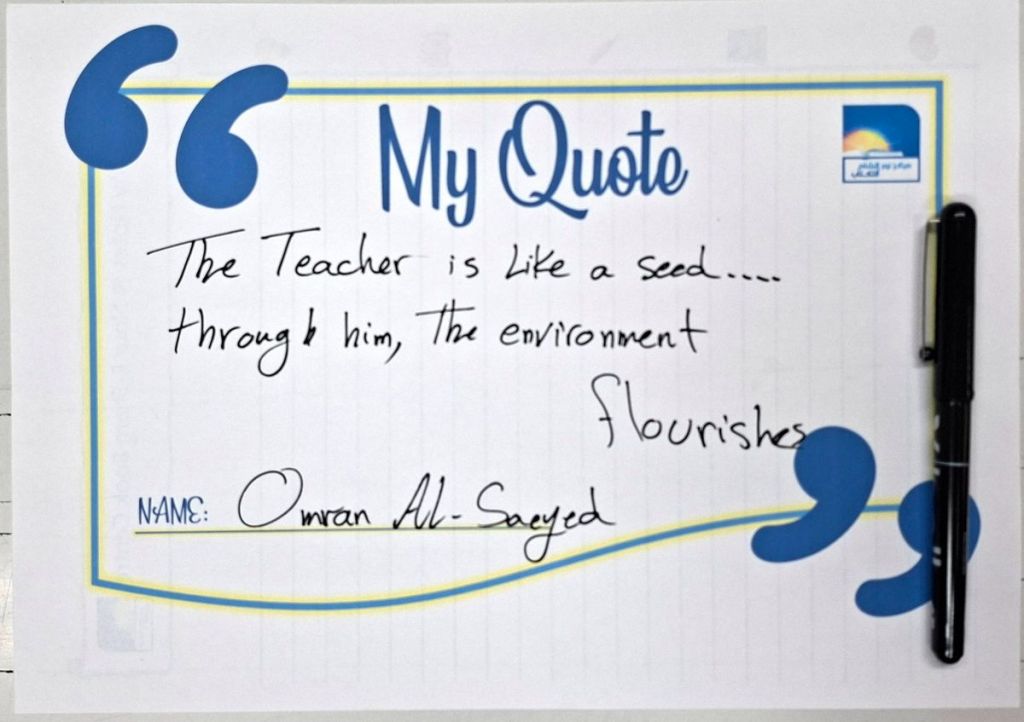 My Quote
The Teacher is Like a seed.....
through him, The environment
flourishes
NAME: Omran Al-Saeyed